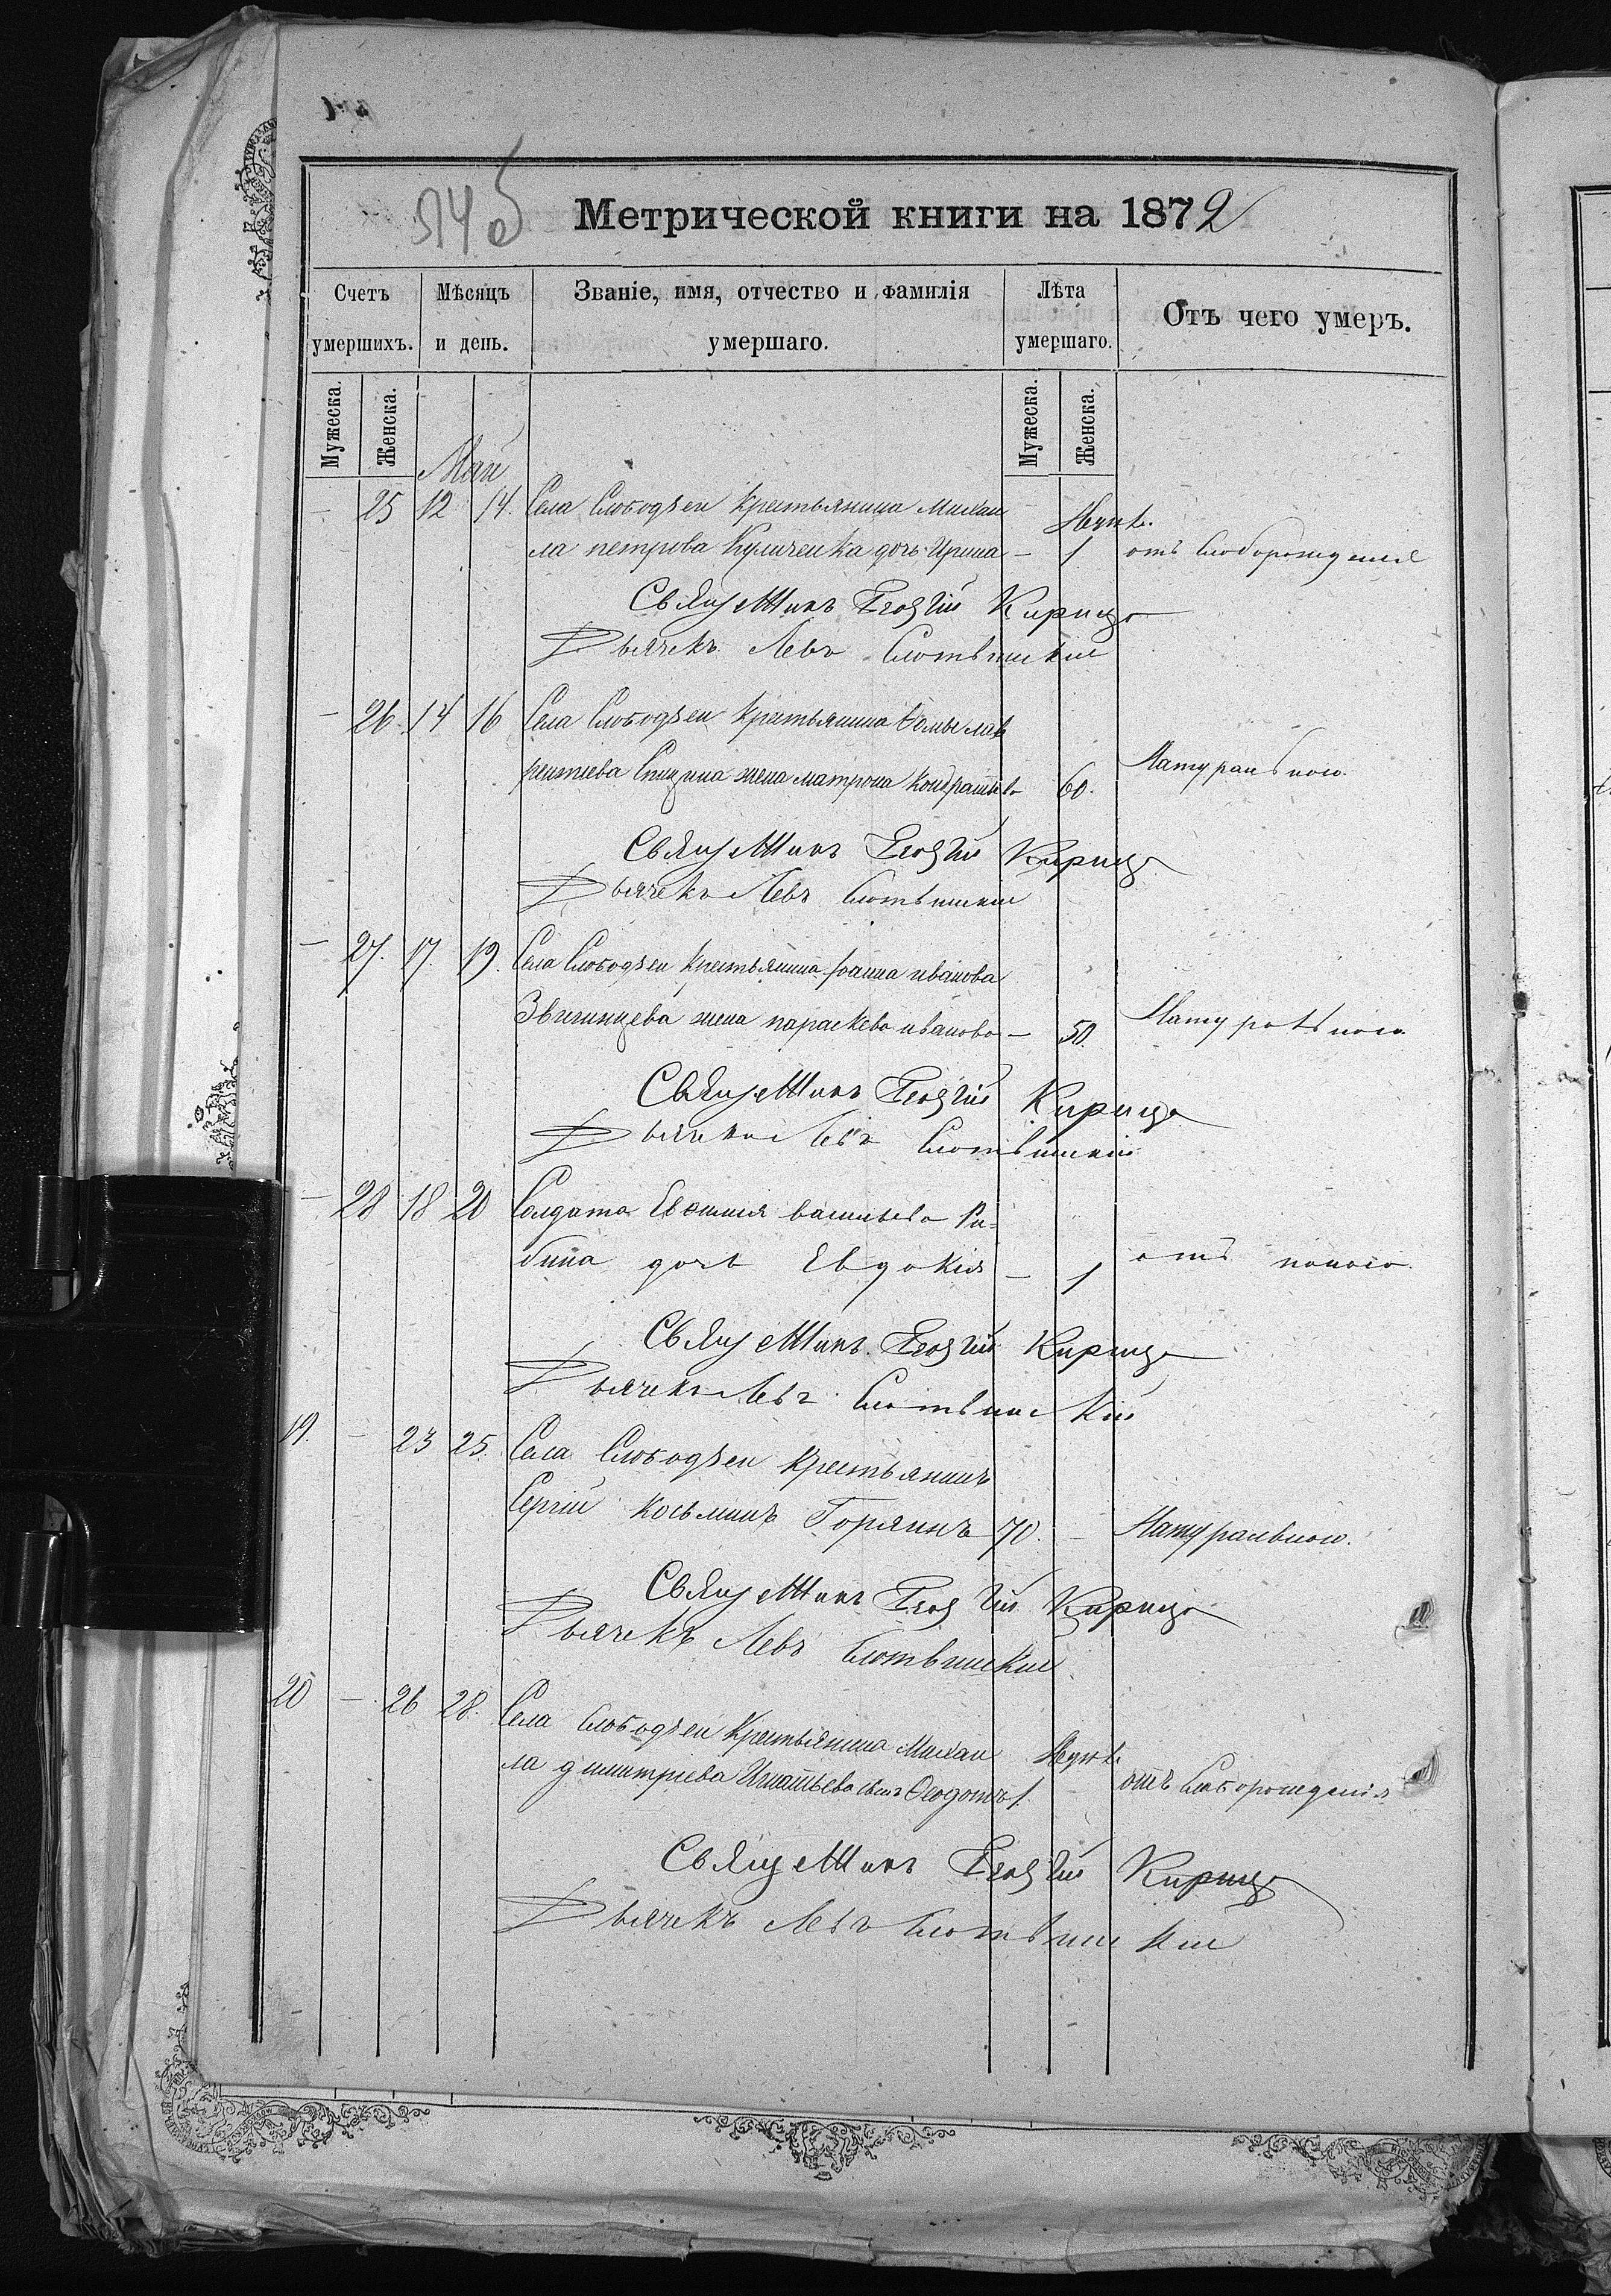 514об
Метрической книги на 1872
Счетъ умершихъ. Мѣсяцъ и день. Званіе, имя, отчество и фамилія умершаго. Лѣта умершаго. Отъ чего умеръ.
Мужеска. Женска. Мужеска. Женска.
Май
– 25 12 14. Села Слободзеи Крестьянина Михаи
ла петрова Куличенка дочь Ирина – 1 отъ слаборожденія
Священникъ Георгій Кирица
Дьячекъ Левъ Слотвинскій
– 26. 14 16 Села Слободзеи Крестьянина Ѳомы лав
рентіева Спицина жена матрона Кондратьева 60. Натуральною.
Священникъ Георгій Кирица
Дьячекъ Левъ Слотвинскій
– 27. 17. 19. Села Слободзеи Крестьянина Іоанна иванова
Звигинцева жена параскева иванова – 50. Натуральною
Священникъ Георгій Кирица
Дьячекъ Левъ Слотвинскій
– 28 18 20 Солдата Евѳимія васильева Ри-
бина дочь Евдокія – 1 отъ поноса.
Священникъ Георгій Кирица
Дьячекъ Левъ Слотвинскій
19. – 23 25. Села Слободзеи Крестьянинъ
Сергій Косьминъ Горяинъ 70. – Натуральною.
Священникъ Георгій Кирица
Дьячекъ Левъ Слотвинскій
20 – 26 28. Села Слободзеи Крестьянина Михаи
ла димитріева Игнатьева сынъ Ѳеодотъ 1. – отъ слаборожденія
Священникъ Георгій Кирица
Дьячекъ Левъ Слотвинскій